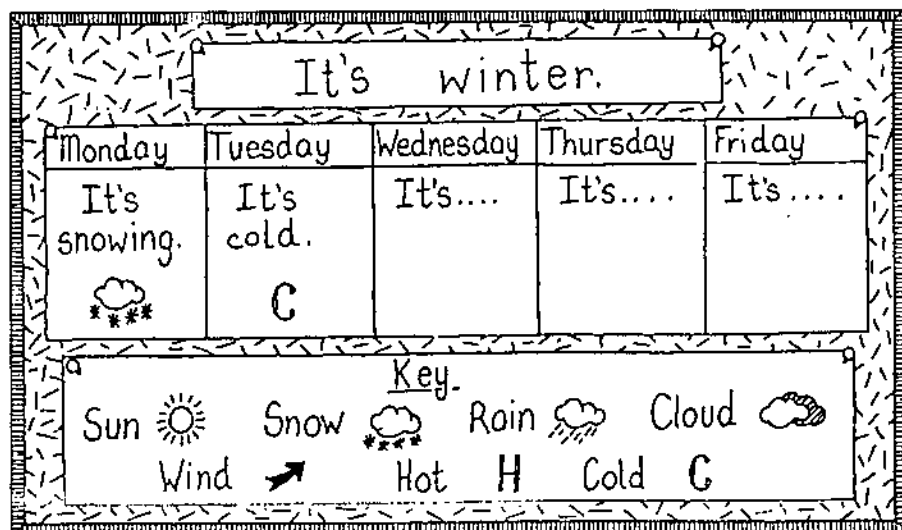 It's winter.
Monday Tuesday Wednesday Thursday Friday
It's It's It's.... It's.... It's....
snowing. cold.
C
Key.
Sun Snow Rain Cloud
Wind Hot H Cold C